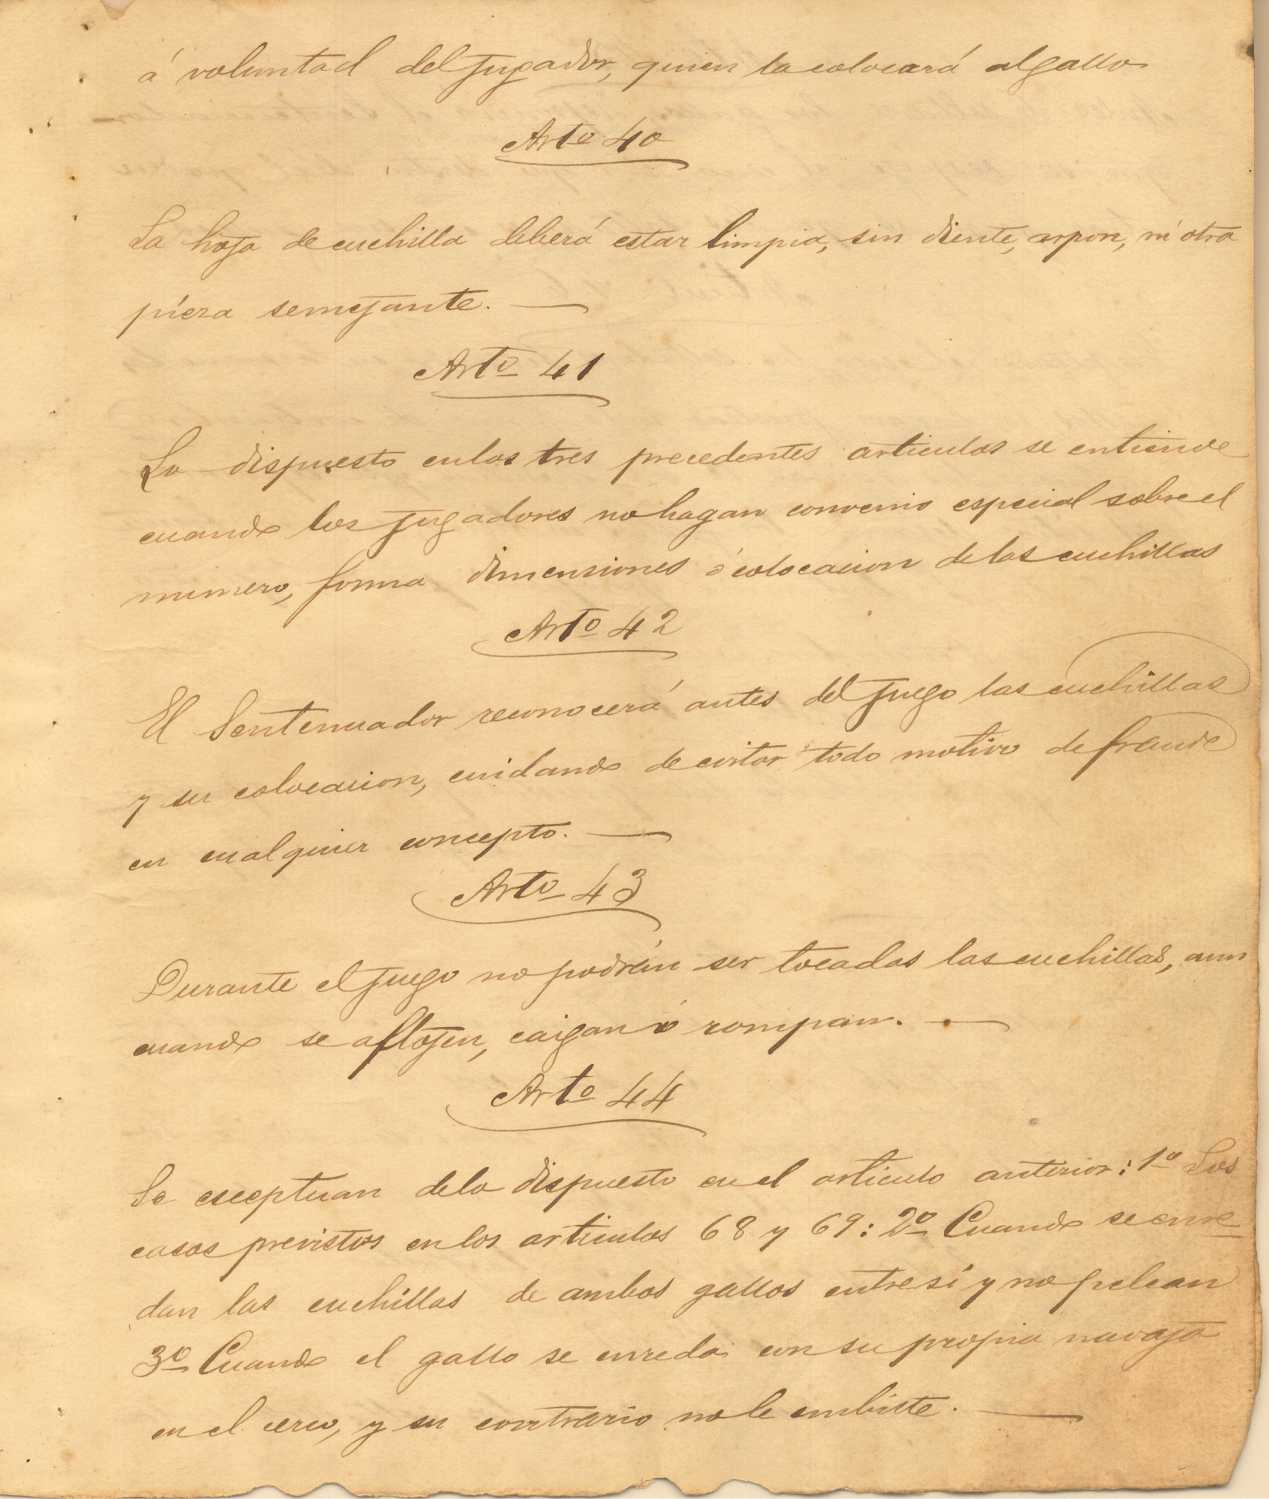 á voluntad del jugador, quien la colocará al gallo
Arto 40
La hoja de cuchilla deberá estar limpia, sin diente, arpon, ni otra
pieza semejante. —
Arto 41
Lo dispuesto en los tres precedentes articulos se entiende
cuando los jugadores no hagan convenio especial sobre el
numero, forma dimensiones ó colocacion de las cuchillas
Arto 42
El Sentenciador reconocerá antes del juego las cuchillas
y su colocacion, cuidando de evitar todo motivo de fraude
en cualquier concepto. —
Arto 43
Durante el juego no podrán ser tocadas las cuchillas, aun
cuando se aflojen, caigan ó rompan. —
Arto 44
Se esceptuan de lo dispuesto en el articulo anterior: 1º Los
casos previstos en los articulos 68 y 69: 2º Cuando se enre-
dan las cuchillas de ambos gallos entre sí y no pelean
3º Cuando el gallo se enreda con su propia navaja
en el cerco, y su contrario no le embiste. —